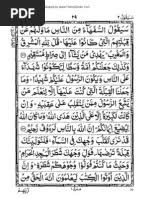 سيقول ٢
سَيَقُولُ السُّفَهَآءُ مِنَ النَّاسِ مَا وَلّٰىهُمْ عَنْ
قِبْلَتِهِمُ الَّتِىْ كَانُوْا عَلَيْهَا ؕ قُلْ لِّلّٰهِ الْمَشْرِقُ
وَالْمَغْرِبُ ؕ يَهْدِىْ مَنْ يَّشَآءُ اِلٰى صِرَاطٍ مُّسْتَقِيْمٍ
وَكَذٰلِكَ جَعَلْنٰكُمْ اُمَّةً وَّسَطًا لِّتَكُوْنُوْا شُهَدَآءَ عَلَى
النَّاسِ وَيَكُوْنَ الرَّسُوْلُ عَلَيْكُمْ شَهِيْدًا ؕ وَمَا جَعَلْنَا
الْقِبْلَةَ الَّتِىْ كُنْتَ عَلَيْهَآ اِلَّا لِنَعْلَمَ مَنْ يَّتَّبِعُ الرَّسُوْلَ
مِمَّنْ يَّنْقَلِبُ عَلٰى عَقِبَيْهِ ؕ وَاِنْ كَانَتْ لَكَبِيْرَةً اِلَّا عَلَى
الَّذِيْنَ هَدَى اللّٰهُ ؕ وَمَا كَانَ اللّٰهُ لِيُضِيْعَ اِيْمَانَكُمْ ؕ اِنَّ اللّٰهَ
بِالنَّاسِ لَرَءُوْفٌ رَّحِيْمٌ قَدْ نَرٰى تَقَلُّبَ وَجْهِكَ فِى السَّمَآءِ ۚ
فَلَنُوَلِّيَنَّكَ قِبْلَةً تَرْضٰىهَا ۪ فَوَلِّ وَجْهَكَ شَطْرَ الْمَسْجِدِ
الْحَرَامِ ؕ وَحَيْثُ مَا كُنْتُمْ فَوَلُّوْا وُجُوْهَكُمْ شَطْرَهٗ ؕ وَاِنَّ
الَّذِيْنَ اُوْتُوا الْكِتٰبَ لَيَعْلَمُوْنَ اَنَّهُ الْحَقُّ مِنْ
رَّبِّهِمْ